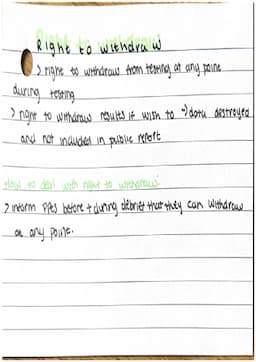 Right to withdraw
> right to withdraw from testing at any point
during testing
> right to withdraw results if wish to -> data destroyed
and not included in public report
How to deal with right to withdraw:
> inform PPs before + during debrief that they can withdraw
at any point.